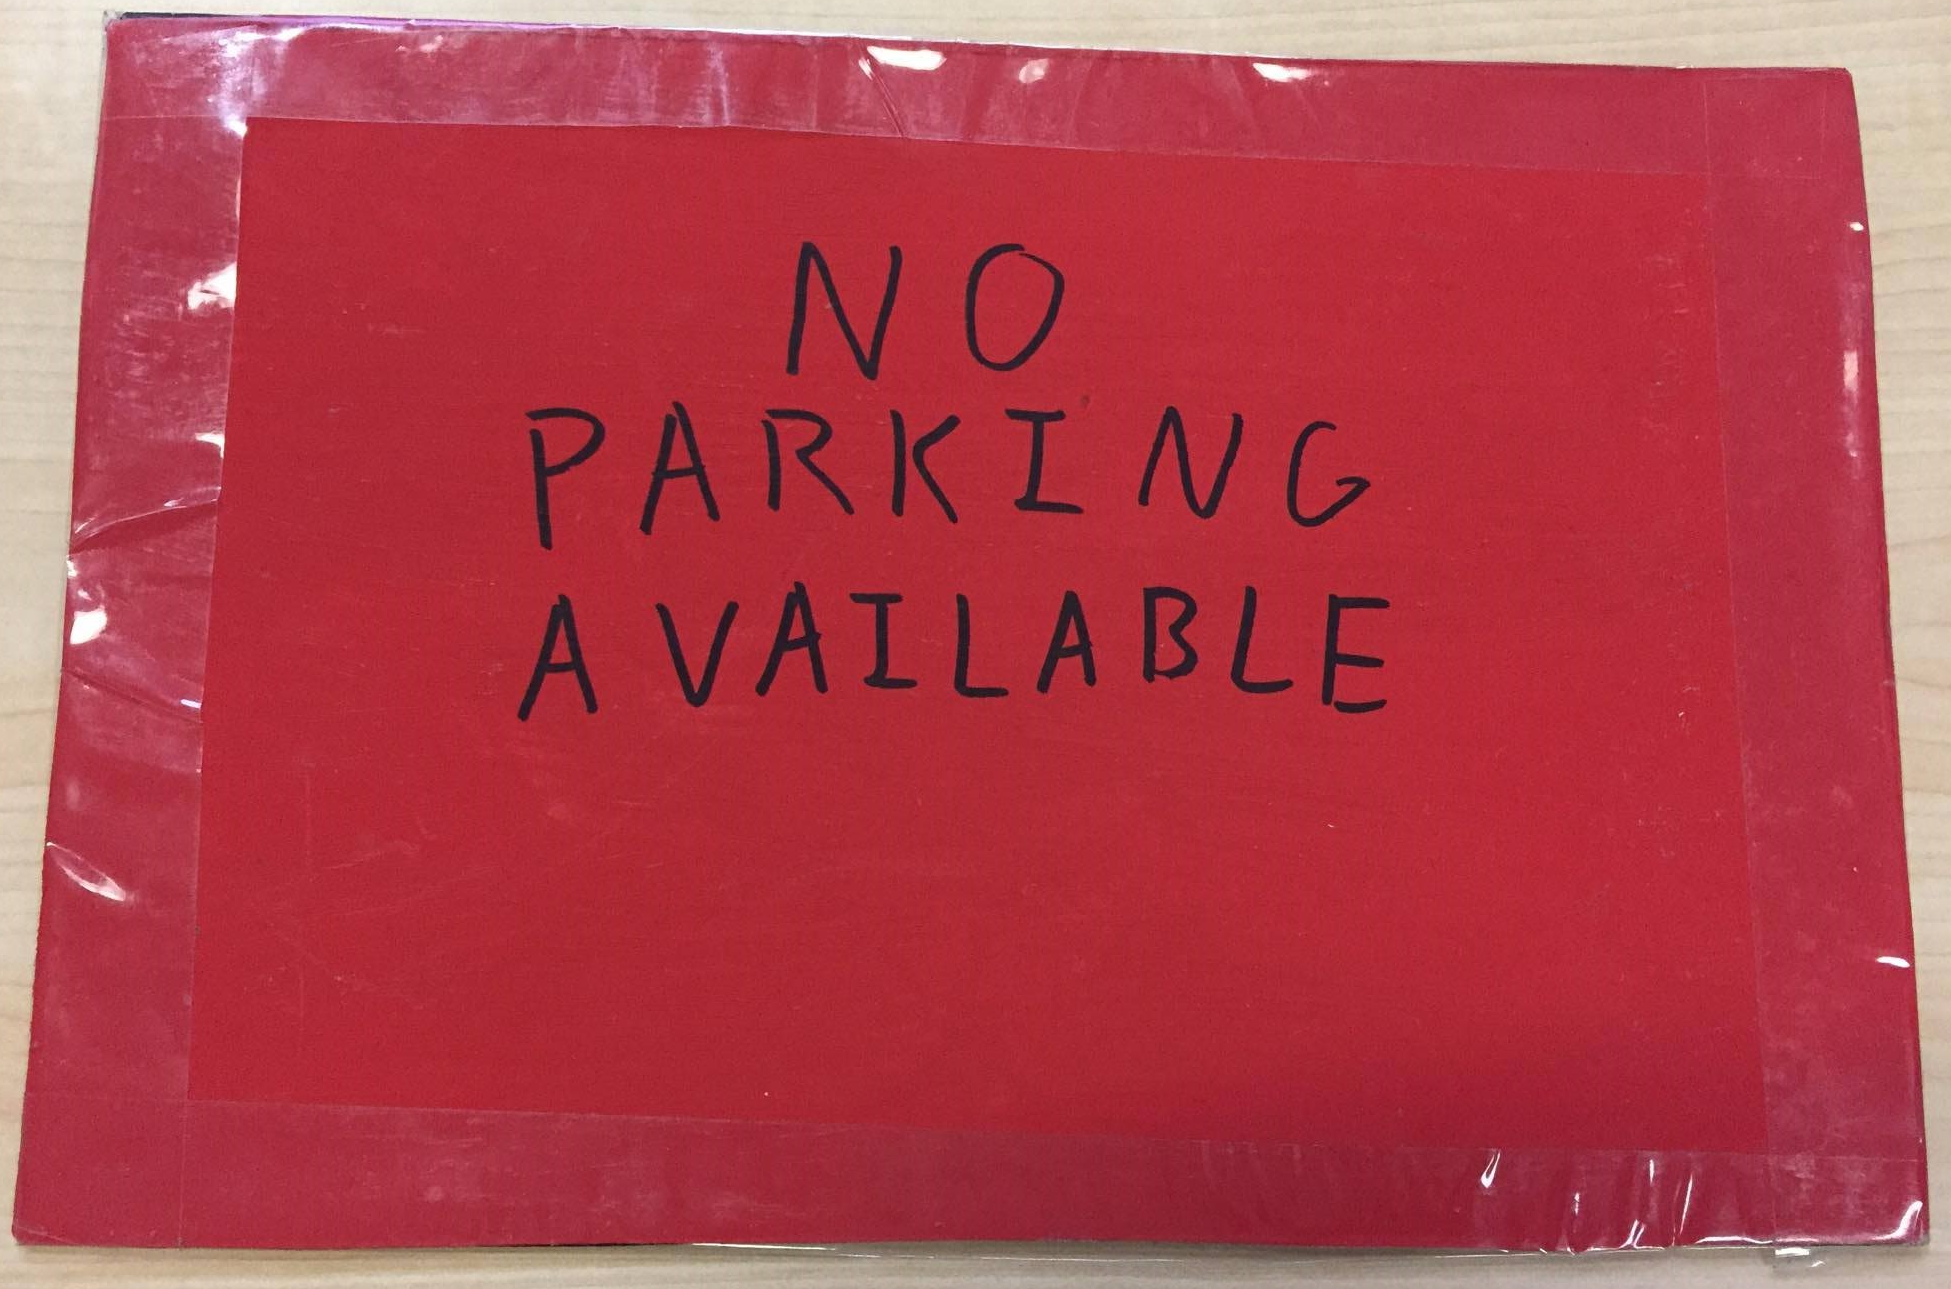 NO
PARKING
AVAILABLE